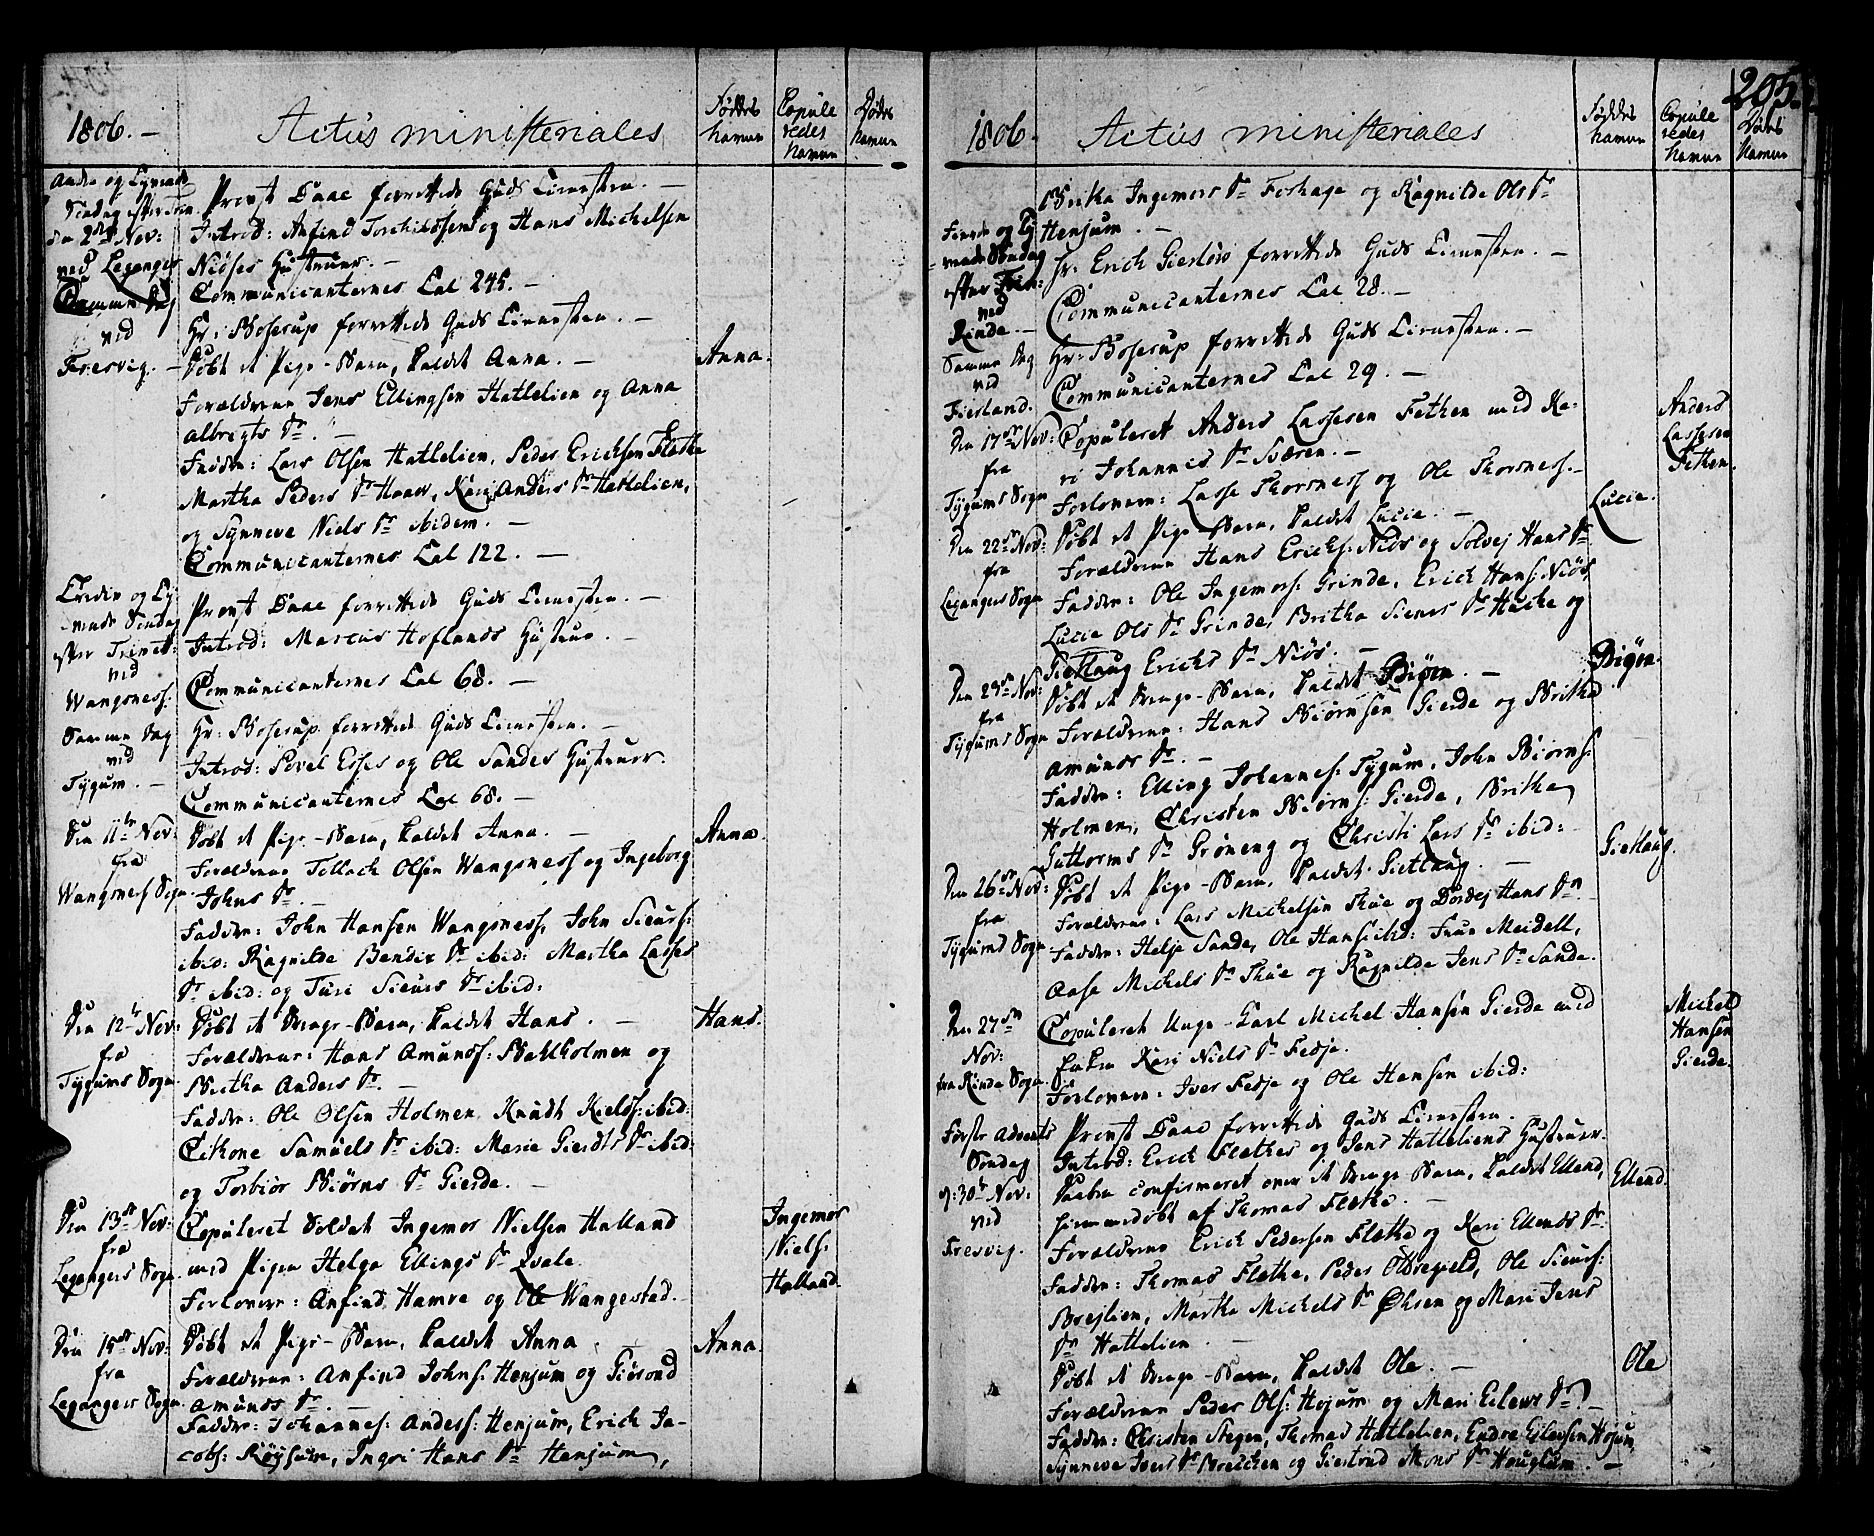 205.
1806. — Actus ministeriales Føddes Navne Copuleredes Navne Dødes Navne
Anden og Tyvende
Søndag efter Trin:
den 2den Nov:
ved Leganger
Provst Daae forrettede Guds Tienesten. —
Introd: Anfind Torchildsens og Hans Michelsen
Niøses Hustruer. —
Communicanternes Tal 245. —
Samme Dag
ved
Fresvig. —
Hr: Boserup forrettede Guds Tienesten. —
Døbt et Pige-Barn, kaldet Anna. — Anna.
Forældrene Jens Ellingsen Hattelien og Anna
Albregts Dr. —
Faddre: Lars Olsen Hattelien, Peder Erichsen Flæthe
Martha Peders Dr Haaw, Kari Anders Dr Hattelien,
og Synneve Niels Dr ibidem. —
Communicanternes Tal 122. —
Tredie og Ty-
vende Søndag
efter Trinit:
ved
Wangsness.
Provst Daae forrettede Guds Tienesten. —
Introd: Marcus Hoflands Hustrue. —
Communicanternes Tal 68. —
Samme Dag
ved
Tygum. —
Hr: Boserup forrettede Guds Tienesten. —
Introd: Povel Esses og Ole Sandes Hustruer.
Communicanternes Tal 68. —
Den 11te Nov:
fra
Wangsness Sogn.
Døbt et Pige-Barn, kaldet Anna. — Anna.
Forældrene Tollach Olsen Wangsness og Ingeborg
Johns Dr. —
Faddre: John Hansen Wangsness, John Siurs:
ibid: Ragnilde Bendix Dr ibid: Martha Lasses
Dr ibid: og Turi Siurs Dr ibid:
Den 12te Nov:
fra
Tygums Sogn.
Døbt et Drenge-Barn, kaldet Hans. — Hans.
Forældrene: Hans Amunds: Bahlholmen og
Britha Anders Dr. —
Faddre: Ole Olsen Holmen, Knudt Kields: ibid:
Cikone Samuels Dr ibid: Marie Gierdts Dr ibid:
og Torbiør Biørns Dr Gierde. —
Den 13de Nov:
fra
Legangers Sogn.
Copuleret Soldat Ingemor Nielsen Halland
med Pigen Helga Ellings Dr Qvale.
Forlovere: Anfind Hamre og Ole Wangestad.
Ingemor
Niels:
Halland.
Den 15de Nov:
fra
Legangers Sogn.
Døbt et Pige-Barn, kaldet Anna. Anna.
Forældrene: Anfind Johns: Henjum og Giørond
Amunds Dr. —
Faddre: Johannes Anders: Henjum, Erich Ja-
cobs: Røysum, Ingri Hans Dr Henjum,
1806. Actus ministeriales Føddes Navne Copuleredes Navne Dødes Navne
Britha Ingemors Dr Forhage og Ragnilde Ols Dr
Henjum. —
Fierde og Ty-
vende Søndag
efter Trin:
ved
Rinde. —
Hr. Erich Gierløw forrettede Guds Tienesten. —
Communicanternes Tal 28. —
Samme Dag
ved
Fierland.
Hr: Boserup forrettede Guds Tienesten. —
Communicanternes Tal 29. —
Den 17de Nov:
fra
Tygums Sogn
Copuleret Anders Lassesen Fethen med Ka-
ri Johannes Dr Sværen. —
Forlovere: Lasse Thorsness og Ole Thorsness. —
Anders
Lassesen
Fethen.
Den 22de Nov:
fra
Legangers Sogn
Døbt et Pige-Barn, kaldet Lucie. — Lucie.
Forældrene Hans Erichs: Niøs og Solvej Hans Dr
Faddre: Ole Ingemors: Grinde, Erich Hans: Niøs,
Lucie Ols Dr Grinde, Britha Siurs Dr Huke og
Giertlaug Erichs Dr Niøs. —
Den 23de Nov:
fra
Tygums Sogn
Døbt et Drenge-Barn, kaldet Biørn. — Biørn.
Forældrene: Hans Biørnsen Gierde og Britha
Amunds Dr. —
Faddre: Elling Johannes: Tygum, John Biørns:
Holmen, Christen Biørns: Gierde, Britha
Guttorms Dr Grøneng og Christi Lars Dr ibid:
Den 26de Nov:
fra
Tygums Sogn.
Døbt et Pige-Barn, kaldet Giertlaug. — Giertlaug.
Forældrene: Lars Michelsen Thue og Dordej Hans Dr
Faddre: Helje Sande, Ole Hans: ibid: Frue Meidell,
Aase Michels Dr Thue og Ragnilde Jens Dr Sande.
Den 27de
Nov:
fra Rinde Sogn.
Copuleret Unge-Karl Michel Hansen Gierde med
Enken Kari Niels Dr Fedje.
Forlovere: Iver Fedje og Ole Hansen ibid:
Michel
Hansen
Gierde.
Første Advents
Søndag
d: 30te Nov:
ved
Fresvig.
Provst Daae forrettede Guds Tienesten.
Introd: Erich Flæthes og Jens Hatteliens Hustruer.
Daaben confirmeret over et Drenge Barn, kaldet Ellend, Ellend.
hiemmedøbt af Thomas Flæthe. —
Forældrene Erich Pedersen Flæthe og Kari Ellends Dr
Faddre: Thomas Flæthe, Peder Oldregield, Ole Siurs:
Brejlien, Martha Michels Dr Øhren og Mari Jens
Dr Hattelien. —
Døbt et Drenge-Barn, kaldet Ole. — Ole
Forældrene Peder Ols: Højum og Mari Eilevs Dr. —
Faddre: Christen Stegen, Thomas Hattelien, Endre Eilevsen Højum,
Synneve Ivers Dr Breichen og Giertrud Mons Dr Houglum. —